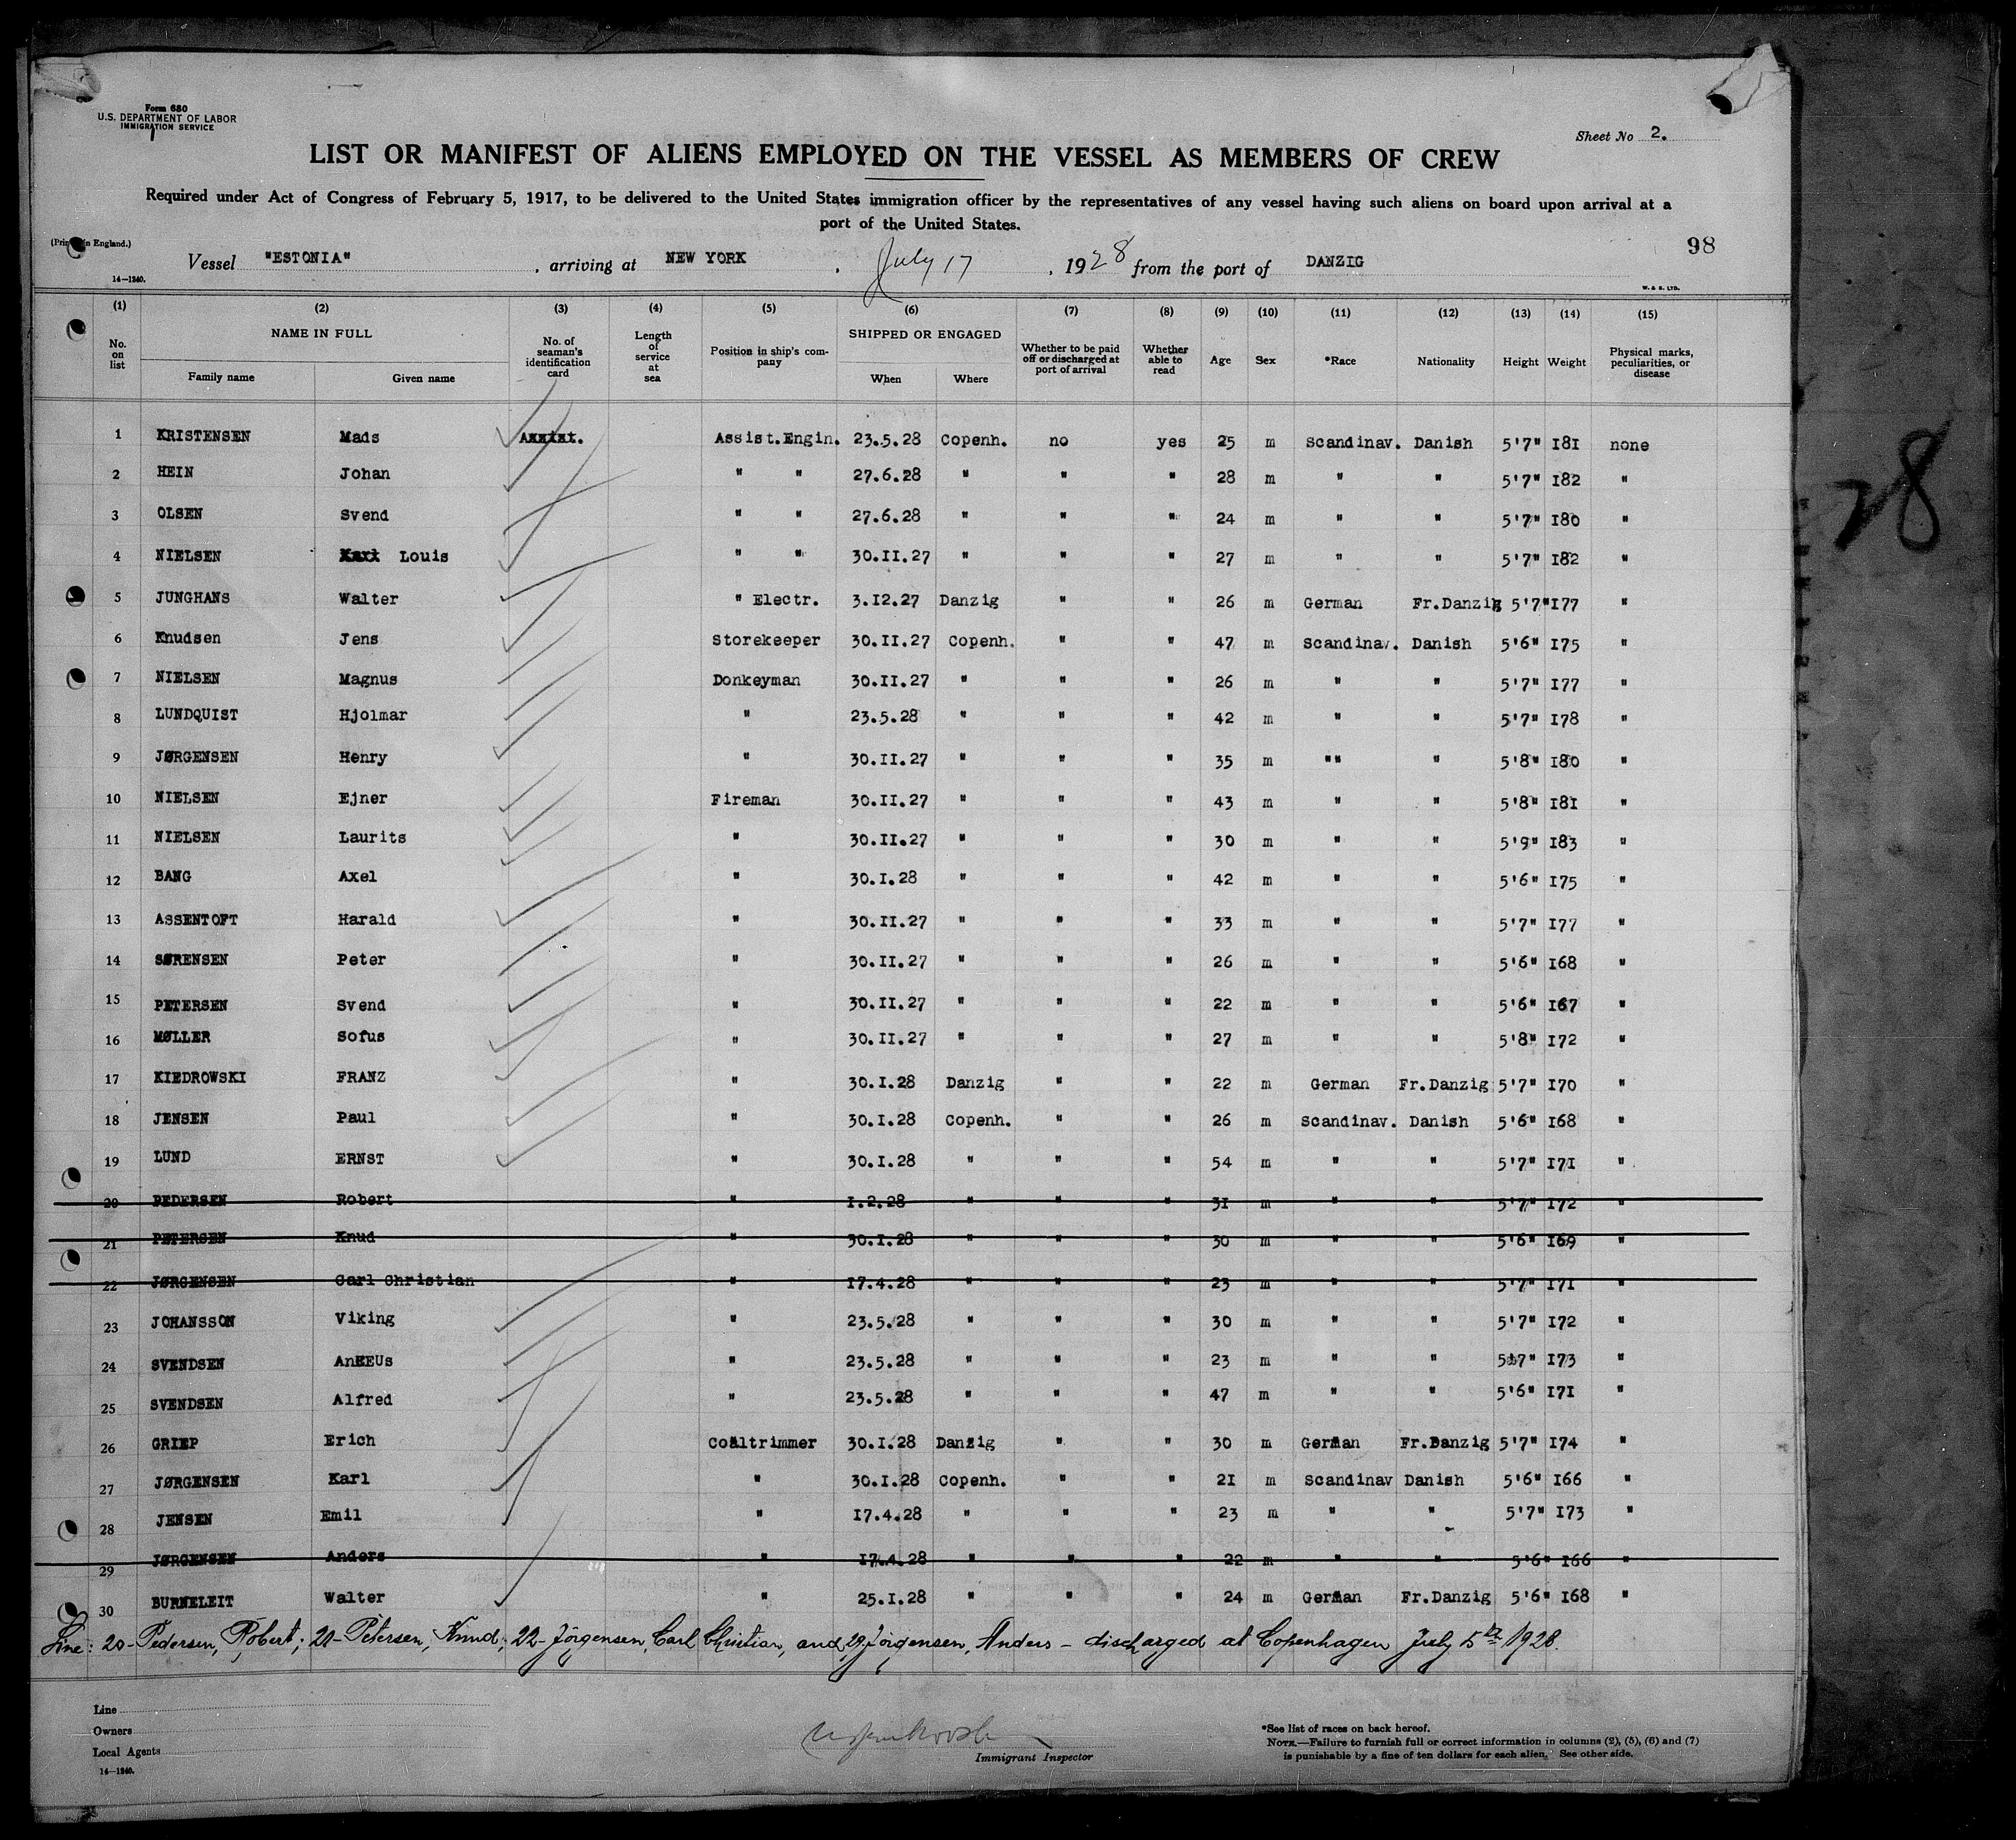 Form 680
U.S. DEPARTMENT OF LABOR
IMMIGRATION SERVICE
Sheet No 2.
LIST OR MANIFEST OF ALIENS EMPLOYED ON THE VESSEL AS MEMBERS OF CREW
Required under Act of Congress of February 5, 1917, to be delivered to the United States immigration officer by the representatives of any vessel having such aliens on board upon arrival at a
port of the United States.
(Printed in England.)
98
Vessel "ESTONIA", arriving at NEW YORK, July 17, 1928 from the port of DANZIG
14—1240.
W. & S. LTD.
(1) (2) (3) (4) (5) (6) (7) (8) (9) (10) (11) (12) (13) (14) (15)
No. on list NAME IN FULL Family name Given name No. of seaman's identification card Length of service at sea Position in ship's company SHIPPED OR ENGAGED When Where Whether to be paid off or discharged at port of arrival Whether able to read Age Sex *Race Nationality Height Weight Physical marks, peculiarities, or disease
1 KRISTENSEN Mads Assist.Engin. 23.5.28 Copenh. no yes 25 m Scandinav. Danish 5'7" I8I none
2 HEIN Johan " " 27.6.28 " " " 28 m " " 5'7" I82 "
3 OLSEN Svend " " 27.6.28 " " " 24 m " " 5'7" I80 "
4 NIELSEN Louis " " 30.II.27 " " " 27 m " " 5'7" I82 "
5 JUNGHANS Walter " Electr. 3.I2.27 Danzig " " 26 m German Fr.Danzig 5'7" I77 "
6 Knudsen Jens Storekeeper 30.II.27 Copenh. " " 47 m Scandinav. Danish 5'6" I75 "
7 NIELSEN Magnus Donkeyman 30.II.27 " " " 26 m " " 5'7" I77 "
8 LUNDQUIST Hjolmar " 23.5.28 " " " 42 m " " 5'7" I78 "
9 JØRGENSEN Henry " 30.II.27 " " " 35 m "" " 5'8" I80 "
10 NIELSEN Ejner Fireman 30.II.27 " " " 43 m " " 5'8" I8I "
11 NIELSEN Laurits " 30.II.27 " " " 30 m " " 5'9" I83 "
12 BANG Axel " 30.I.28 " " " 42 m " " 5'6" I75 "
13 ASSENTOFT Harald " 30.II.27 " " " 33 m " " 5'7" I77 "
14 SØRENSEN Peter " 30.II.27 " " " 26 m " " 5'6" I68 "
15 PETERSEN Svend " 30.II.27 " " " 22 m " " 5'6" I67 "
16 MØLLER Sofus " 30.II.27 " " " 27 m " " 5'8" I72 "
17 KIEDROWSKI FRANZ " 30.I.28 Danzig " " 22 m German Fr.Danzig 5'7" I70 "
18 JENSEN Paul " 30.I.28 Copenh. " " 26 m Scandinav. Danish 5'6" I68 "
19 LUND ERNST " 30.I.28 " " " 54 m " " 5'7" I7I "
20 PEDERSEN Robert " I.2.28 " " " 3I m " " 5'7" I72 "
21 PETERSEN Knud " 30.I.28 " " " 30 m " " 5'6" I69 "
22 JØRGENSEN Carl Christian " I7.4.28 " " " 23 m " " 5'7" I7I "
23 JOHANSSON Viking " 23.5.28 " " " 30 m " " 5'7" I72 "
24 SVENDSEN " 23.5.28 " " " 23 m " " 5'7" I73 "
25 SVENDSEN Alfred " 23.5.28 " " " 47 m " " 5'6" I7I "
26 GRIEP Erich Coaltrimmer 30.I.28 Danzig " " 30 m German Fr.Danzig 5'7" I74 "
27 JØRGENSEN Karl " 30.I.28 Copenh. " " 2I m Scandinav Danish 5'6" I66 "
28 JENSEN Emil " I7.4.28 " " " 23 m " " 5'7" I73 "
29 JØRGENSEN Anders " I7.4.28 " " " 22 m " " 5'6" I66 "
30 BURNELEIT Walter " 25.I.28 " " " 24 m German Fr.Danzig 5'6" I68 "
Line: 20- Pedersen, Robert; 21- Petersen, Knud; 22- Jörgensen, Carl Christian, and 29 Jörgensen, Anders – discharged at Copenhagen July 5th 1928.
Line
Owners
Local Agents
14—1240.
Immigrant Inspector
*See list of races on back hereof.
NOTE.—Failure to furnish full or correct information in columns (2), (5), (6) and (7)
is punishable by a fine of ten dollars for each alien. See other side.
28